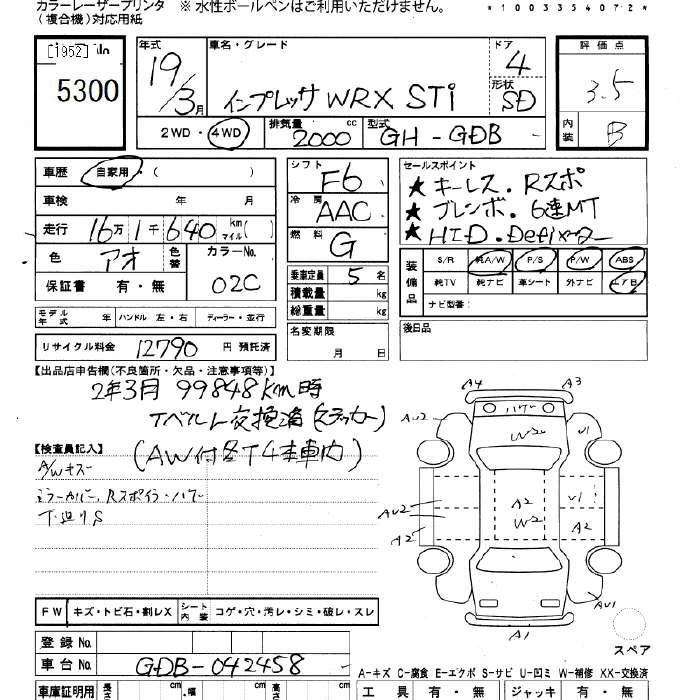 カラーレーザープリンタ ※ 水性ボールペンはご利用いただけません。
(複合機)対応用紙
*1003354072*
[1952]
5300
年式 車名・グレード ドア 評価点
19/3月 インプレッサ WRX STi 4 3.5
形状 SD
2WD・4WD 排気量 2000 cc 型式 GH-GDB 内装 B
車歴 自家用・( )
車検 年 月
走行 16万1千640 km マイル( )
色 アオ 色替 カラーNo. 02C
保証書 有・無
シフト F6
冷房 AAC
燃料 G
乗車定員 5名
積載量 kg
総重量 kg
名変期限 月 日
セールスポイント
★キーレス.Rスポ
★ブレンボ.6速MT
★HID.Defiメーター
装備品 S/R 純A/W P/S P/W ABS
純TV 純ナビ 革シート 外ナビ エアB
ナビ型番:
後日品
モデル年式 年 ハンドル 左・右 ディーラー・並行
リサイクル料金 12790 円 預託済
【出品店申告欄(不良箇所・欠品・注意事項等)】
2年3月 99848km時
Tベルト交換済(ステッカー)
(AW付冬T4本車内)
【検査員記入】
A/Wキズ
ミラーカバー、Rスポイラーハゲ
下廻りS
A4 A3
AU2 ハゲ U1
W2
A2 U1
AU2 W2
A2 A2
AU1
A1
スペア
FW キズ・トビ石・割レX シート内装 コゲ・穴・汚レ・シミ・破レ・スレ
登録 No.
車台 No. GDB-042458
A-キズ C-腐食 E-エクボ S-サビ U-凹ミ W-補修 XX-交換済
車庫証明用 長さ cm 幅 cm 高さ cm
工具 有・無 ジャッキ 有・無